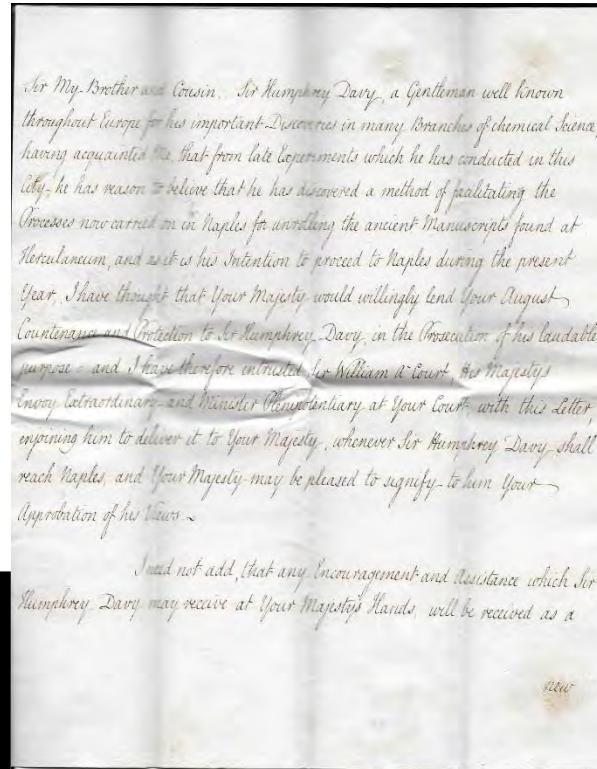 Sir My Brother and Cousin. Sir Humphrey Davy, a Gentleman well known
throughout Europe for his important Discoveries in many Branches of chemical Science,
having acquainted Me, that from late Experiments which he has conducted in this
City, he has reason to believe that he has discovered a method of facilitating the
Processes now carried on in Naples for unrolling the ancient Manuscripts found at
Herculaneum, and as it is his Intention to proceed to Naples during the present
Year, I have thought that Your Majesty would willingly lend Your August
Countenance and Protection to Sir Humphrey Davy, in the Prosecution of his laudable
purpose - and I have therefore intrusted Sir William A'Court, His Majestys
Envoy Extraordinary and Minister Plenipotentiary at Your Court, with this Letter,
enjoining him to deliver it to Your Majesty, whenever Sir Humphrey Davy, shall
reach Naples, and Your Majesty may be pleased to signify to him Your
Approbation of his Views.
I need not add, that any Encouragement and Assistance which Sir
Humphrey Davy may receive at Your Majesty's Hands, will be received as a
new